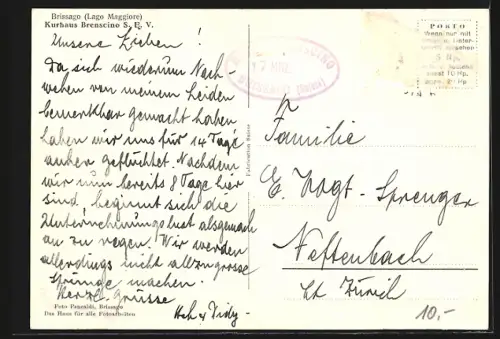 Brissago (Lago Maggiore)
Kurhaus Brenscino S. E. V.
Unsere Lieben!
Da sich wiederum Nach-
wehen von meinem Leiden
bemerkbar gemacht haben
haben wir uns für 14 Tage
anher geflüchtet. Nachdem
wir nun bereits 8 Tage hier
sind, beginnt sich die
Unternehmungslust allgemach
an zu regen. Wir werden
allerdings nicht allzugrosse
Sprünge machen.
Herzl. Grüsse
Foto Pancaldi, Brissago
Das Haus für alle Fotoarbeiten
Fabrication Suisse
BRISSAGO
PORTO
Wenn nur mit
Familie
E. Vogt-Sprenger
Neftenbach
Kt. Zürich
10,-